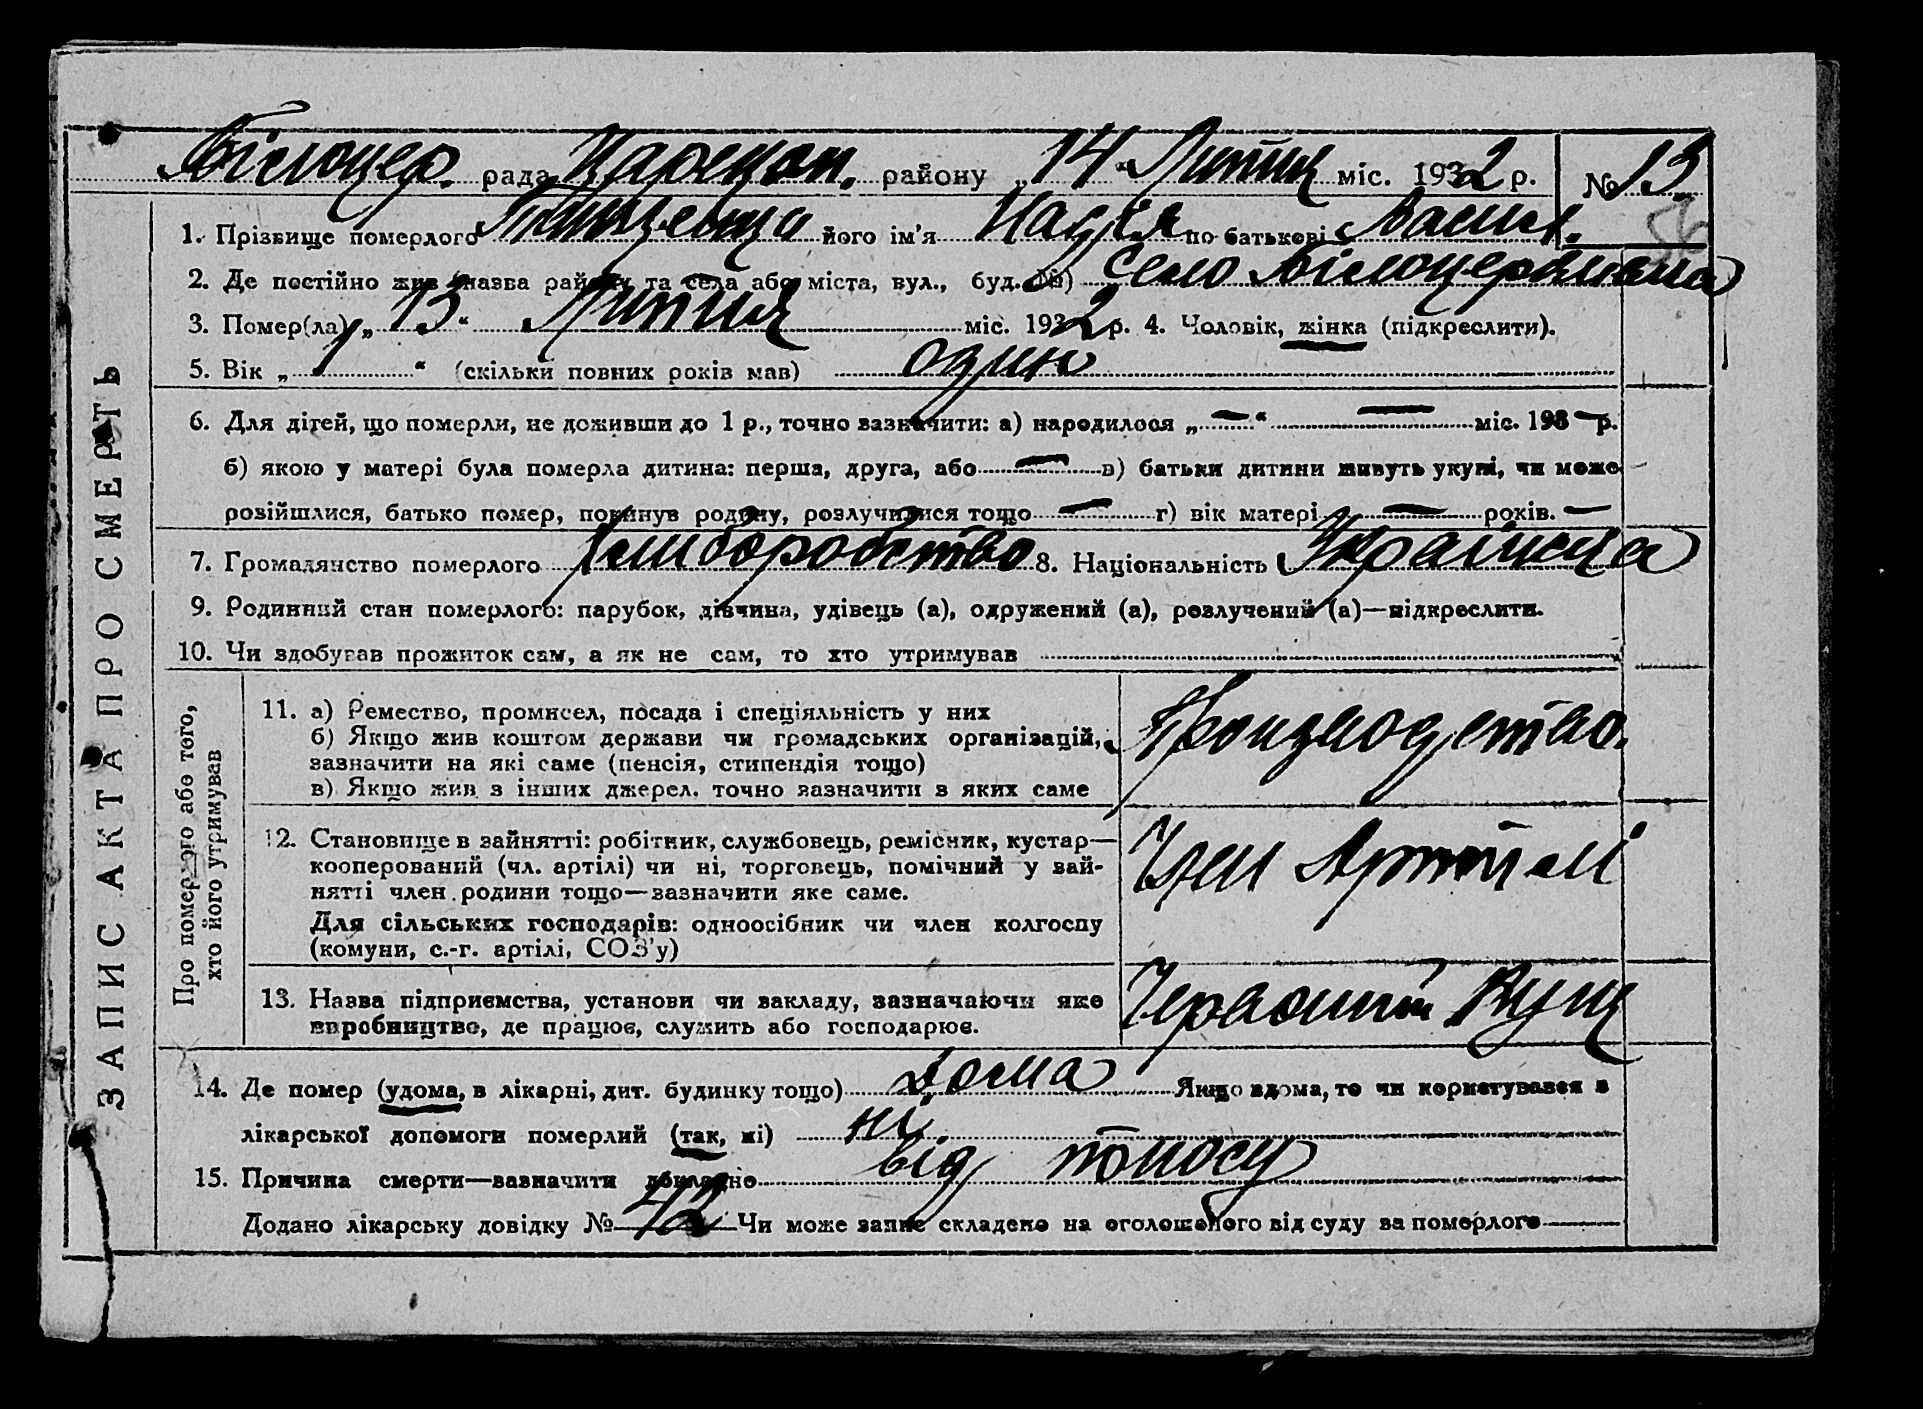 Білоцер. рада, Царичан. району „14" Липня міс. 1932 р. № 13
56
1. Прізвище померлого його ім'я Надія по батькові Васил.
2. Де постійно жив (назва району та села або міста, вул., буд. №) Село Білоцерковка
3. Помер(ла) „13" Липня міс. 1932 р. 4. Чоловік, жінка (підкреслити).
5. Вік „1" (скільки повних років мав) один
6. Для дітей, що померли, не доживши до 1 р., точно зазначити: а) народилося „—" — міс. 193 — р.
б) якою у матері була померла дитина: перша, друга, або — в) батьки дитини живуть укупі, чи може
розійшлися, батько помер, покинув родину, розлучилися тощо — г) вік матері — років. —
7. Громадянство померлого Хліборобство 8. Національність Українка
9. Родинний стан померлого: парубок, дівчина, удівець (а), одружений (а), розлучений (а)—підкреслити.
10. Чи здобував прожиток сам, а як не сам, то хто утримував
ЗАПИС АКТА ПРО СМЕРТЬ
Про померлого або того, хто його утримував
11. а) Ремество, промисел, посада і спеціяльність у них
б) Якщо жив коштом держави чи громадських організацій,
зазначити на які саме (пенсія, стипендія тощо)
в) Якщо жив з інших джерел, точно зазначити з яких саме
Производство.
12. Становище в зайнятті: робітник, службовець, ремісник, кустар—
кооперований (чл. артілі) чи ні, торговець, помічний у зай-
нятті член родини тощо—зазначити яке саме.
Для сільських господарів: одноосібник чи член колгоспу
(комуни, с.-г. артілі, СОЗ'у)
Член Артілі
13. Назва підприємства, установи чи закладу, зазначаючи яке
виробництво, де працює, служить або господарює.
Червоний Кущ
14. Де помер (удома, в лікарні, дит. будинку тощо) дома Якщо вдома, то чи користувався з
лікарської допомоги померлий (так, ні) ні
15. Причина смерти—зазначити докладно від поносу
Додано лікарську довідку № 42 Чи може запис складено на оголошеного від суду за померлого